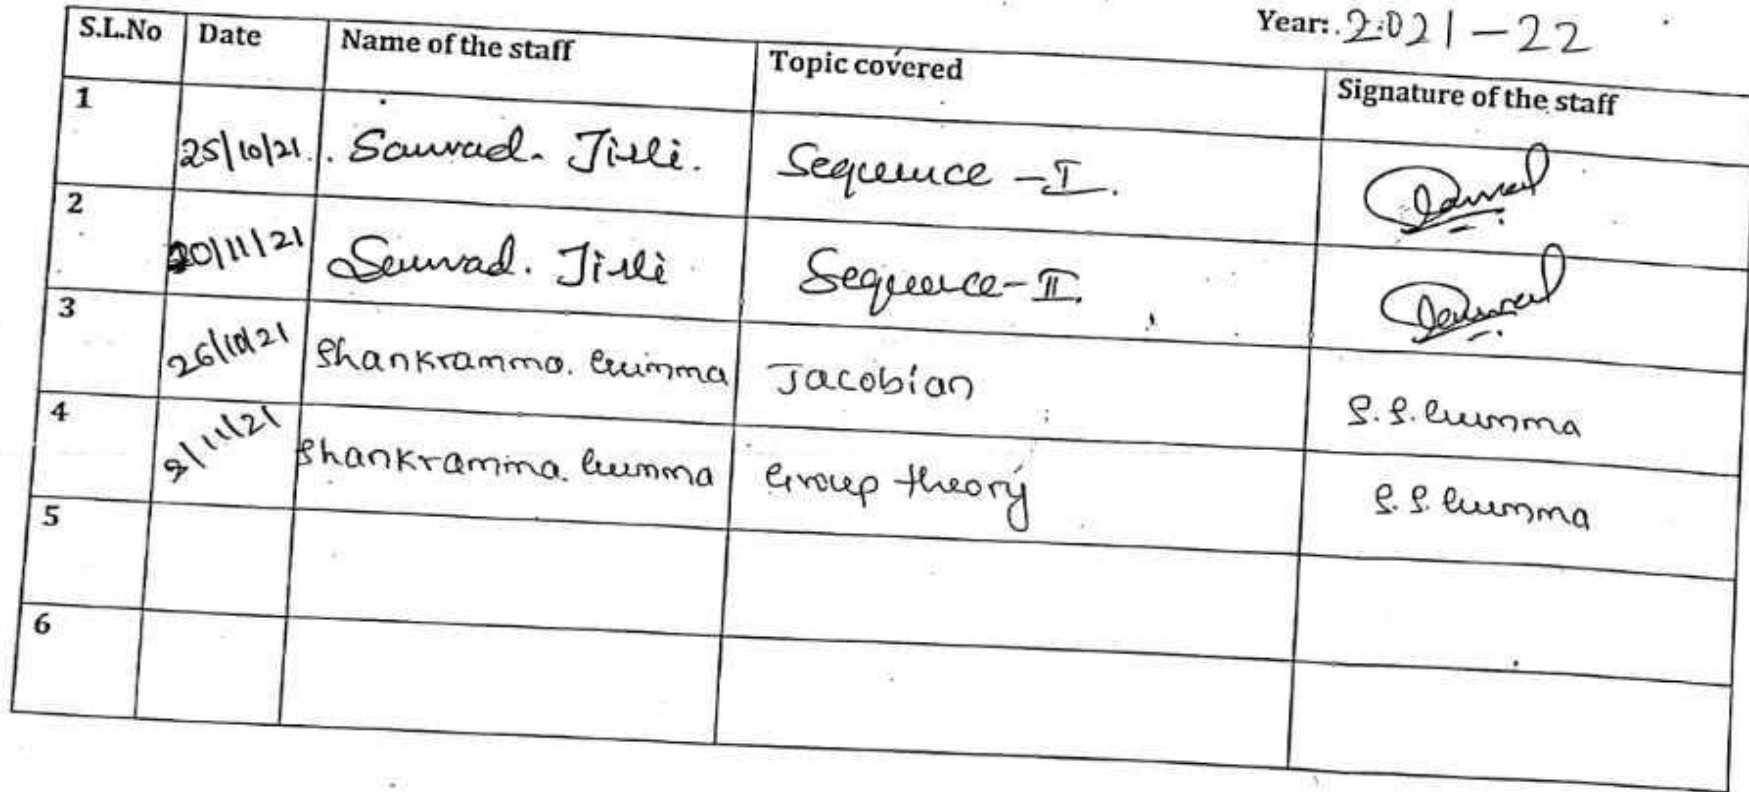 Year: 2021-22
S.L.No Date Name of the staff Topic covered Signature of the staff
1 25/10/21 Sauvad. Jirli. Sequence - I.
2 20/11/21 Sauvad. Jirli Sequence - II.
3 26/10/21 Shankramma. Gumma Jacobian S.S. Gumma
4 9/11/21 Shankramma. Gumma Group theory S.S. Gumma
5
6